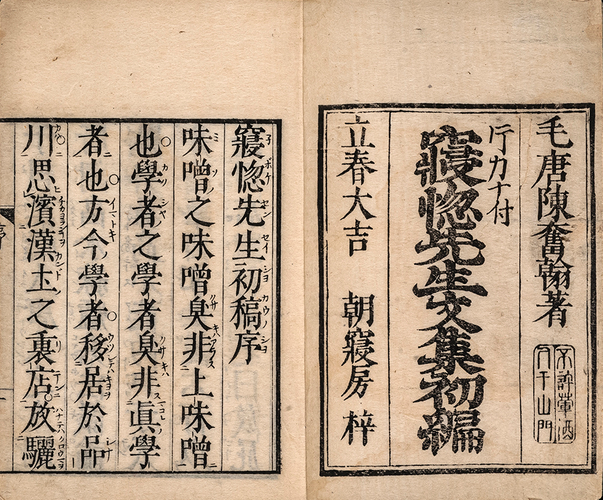 毛唐陳奮翰著
不許葷酒
入于山門
片カナ付
寢惚先生文集初編
立春大吉　朝寢房　梓
寢惚先生初稿序
味噌之味噌臭非上味噌
也學者之學者臭非眞學
者也方今學者移居於品
川思濱漢圡之裏店放驪